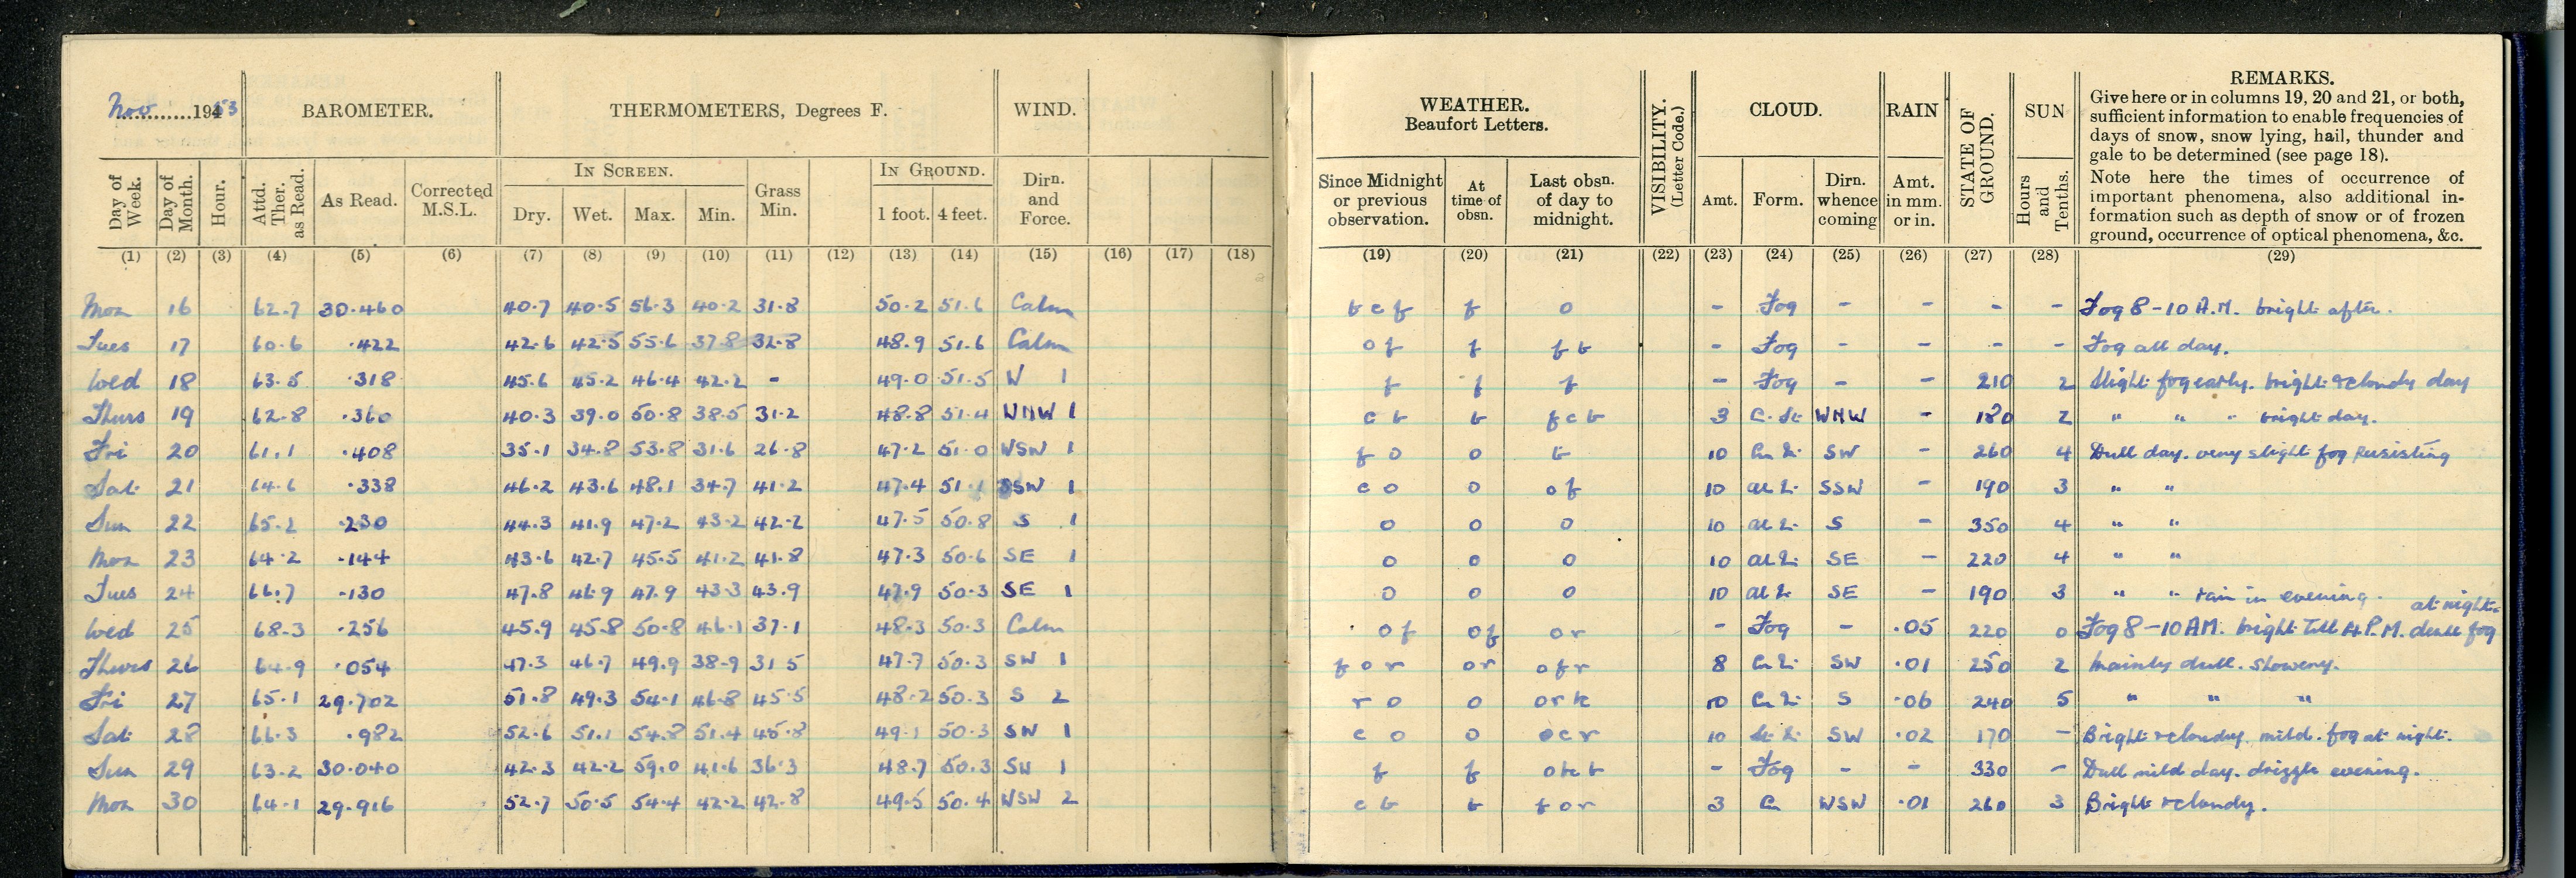 Nov 1953 BAROMETER. THERMOMETERS, Degrees F. WIND.
Day of Week. Day of Month. Hour. Attd. Ther. as Read. As Read. Corrected M.S.L. IN SCREEN. Dry. Wet. Max. Min. Grass Min. IN GROUND. 1 foot. 4 feet. Dirn. and Force.
(1) (2) (3) (4) (5) (6) (7) (8) (9) (10) (11) (12) (13) (14) (15) (16) (17) (18)
Mon 16 62.7 30.460 40.7 40.5 56.3 40.2 31.8 50.2 51.6 Calm
Tues 17 60.6 .422 42.6 42.5 55.6 37.8 32.8 48.9 51.6 Calm
Wed 18 63.5 .318 45.6 45.2 46.4 42.2 - 49.0 51.5 W 1
Thurs 19 62.8 .360 40.3 39.0 50.8 38.5 31.2 48.8 51.4 WNW 1
Fri 20 61.1 .408 35.1 34.8 53.8 31.6 26.8 47.2 51.0 WSW 1
Sat 21 64.6 .338 46.2 43.6 48.1 34.7 41.2 47.4 51.1 SSW 1
Sun 22 65.2 .230 44.3 41.9 47.2 43.2 42.2 47.5 50.8 S 1
Mon 23 64.2 .144 43.6 42.7 45.5 41.2 41.8 47.3 50.6 SE 1
Tues 24 66.7 .130 47.8 46.9 47.9 43.3 43.9 47.9 50.3 SE 1
Wed 25 68.3 .256 45.9 45.8 50.8 46.1 37.1 48.3 50.3 Calm
Thurs 26 64.9 .054 47.3 46.7 49.9 38.9 31.5 47.7 50.3 SW 1
Fri 27 65.1 29.702 51.8 49.3 54.1 46.8 45.5 48.2 50.3 S 2
Sat 28 66.3 .982 52.6 51.1 54.8 51.4 45.8 49.1 50.3 SW 1
Sun 29 63.2 30.040 42.3 42.2 59.0 41.6 36.3 48.7 50.3 SW 1
Mon 30 64.1 29.916 52.7 50.5 54.4 42.2 42.8 49.5 50.4 WSW 2
WEATHER. Beaufort Letters. VISIBILITY. (Letter Code.) CLOUD. RAIN STATE OF GROUND. SUN REMARKS.
Give here or in columns 19, 20 and 21, or both,
sufficient information to enable frequencies of
days of snow, snow lying, hail, thunder and
gale to be determined (see page 18).
Note here the times of occurrence of
important phenomena, also additional in-
formation such as depth of snow or of frozen
ground, occurrence of optical phenomena, &c.
Since Midnight or previous observation. At time of obsn. Last obsn. of day to midnight. Amt. Form. Dirn. whence coming Amt. in mm. or in. Hours and Tenths.
(19) (20) (21) (22) (23) (24) (25) (26) (27) (28) (29)
b c f f o - Fog - - - - Fog 8-10 A.M. bright after.
o f f f b - Fog - - - - Fog all day.
f f f - Fog - - 210 2 Slight fog early. bright & cloudy day
c b b f c b 3 WNW - 180 2 " " " bright day.
f o o b 10 SW - 260 4 Dull day. very slight fog Persisting
c o o o f 10 SSW - 190 3 " "
o o o 10 S - 350 4 " "
o o o 10 SE - 220 4 " "
o o o 10 SE - 190 3 " " rain in evening.
o f o f o r - Fog - .05 220 0 Fog 8-10 AM. bright Till 4 P.M. dense fog at night.
f o r o r o f r 8 SW .01 250 2 Mainly dull. Showery.
r o o 10 S .06 240 5 " " "
c o o o c r 10 SW .02 170 - Bright & cloudy. mild. fog at night.
f f - Fog - - 330 - Dull mild day. drizzle evening.
c b b f o r 3 Cu WSW .01 260 3 Bright & cloudy.